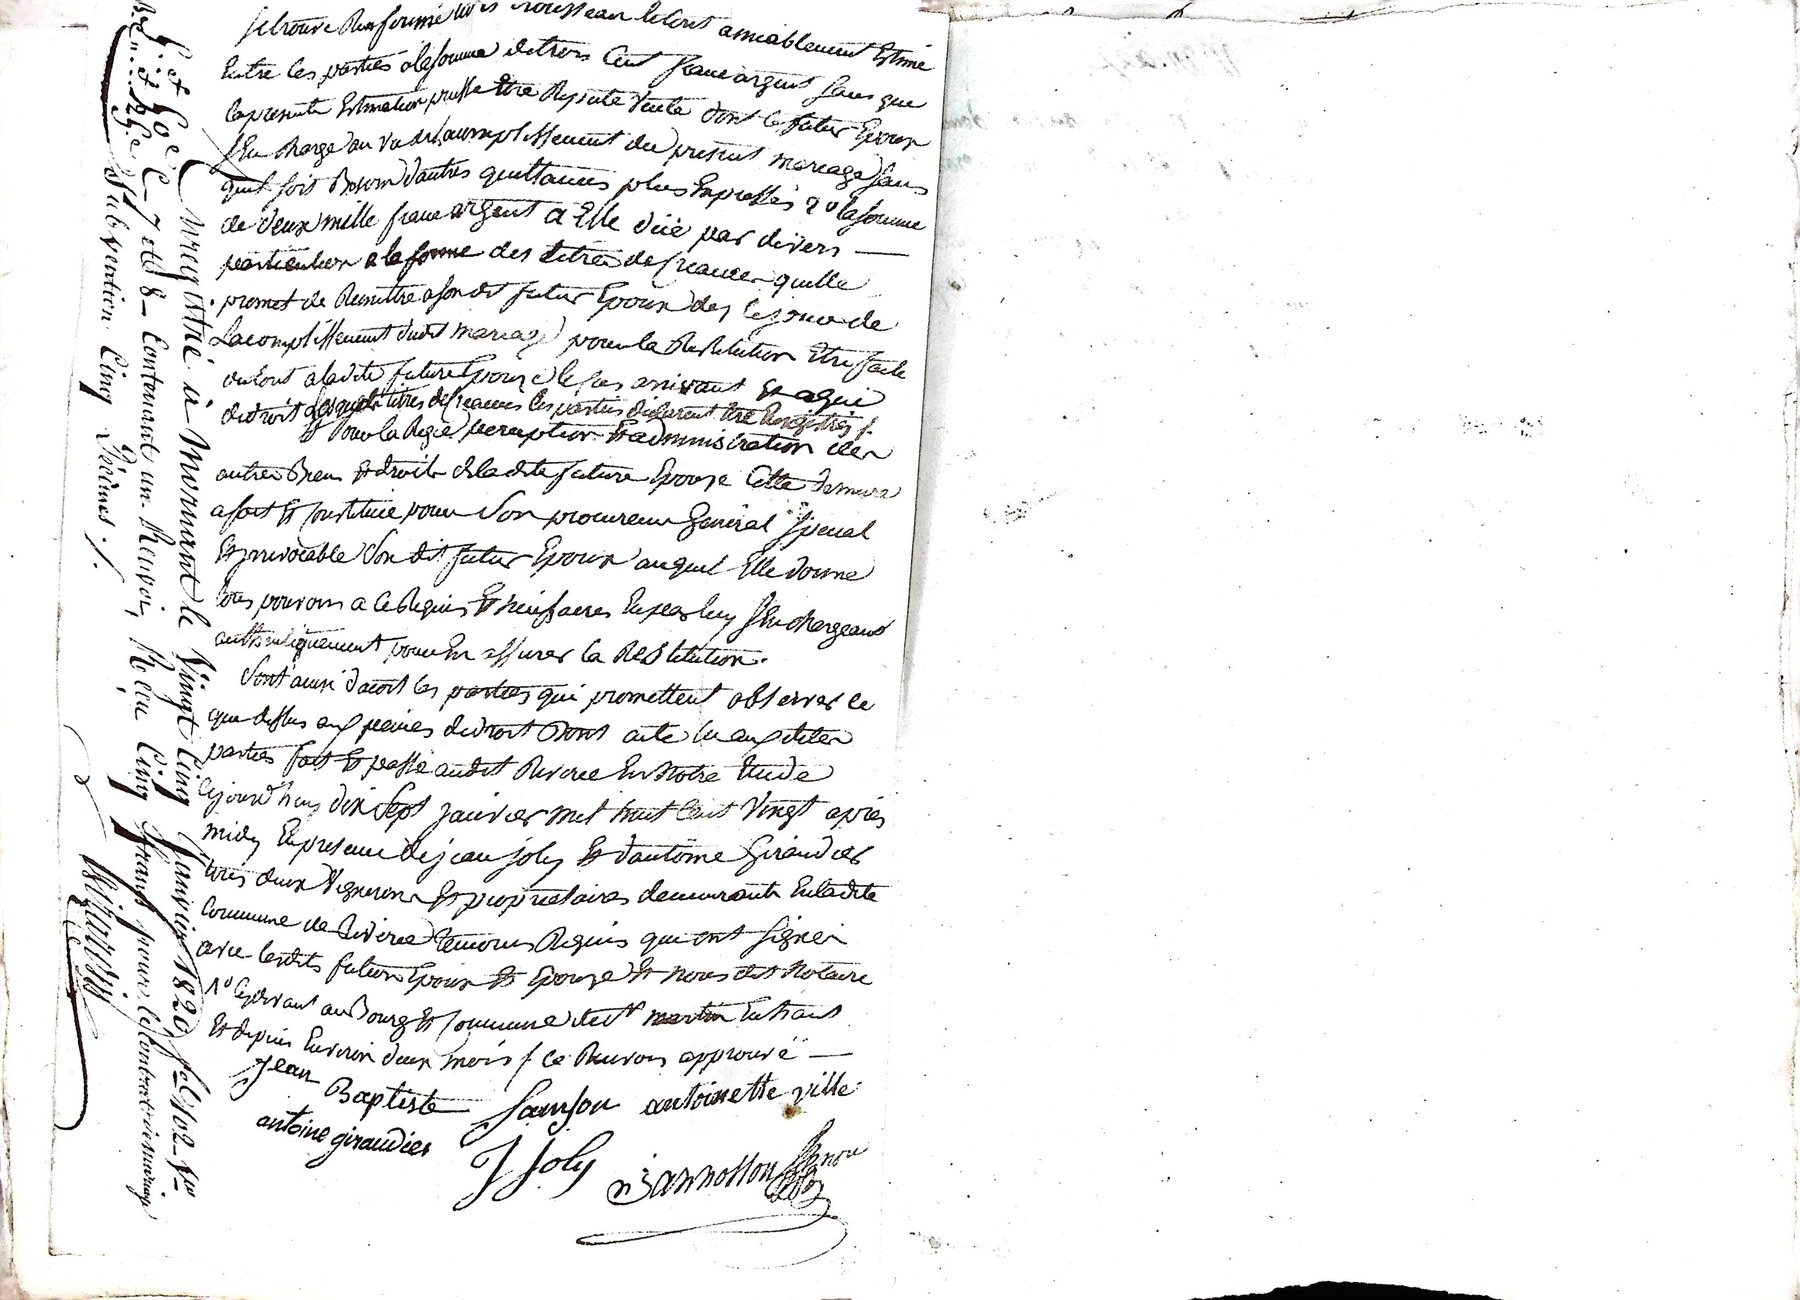 se trouve Renfermé trousseau le tout amiablement Estimé
Entre les parties a la somme de trois Cent franc argent sans que
la presente Estimation puisse Etre Reputée Vente dont le futur Epoux
sen charge au vu de laccomplissement du present mariage sans
quil soit Besoin dautres quittances plus Expresses 2° la somme
de deux mille franc argent a Elle düe par divers
particuliers a la forme des titres de creances quelle
promet de Remettre a son dit futur Epoux des le jour de
Lacomplissement dudit mariage pour la Restitution Etre faite
du tout a ladite future Epouse le cas arrivant Et a qui
de droit lesquels titres de creances les parties declarent Etre Enregistrés ./.
Et Pour la Regie perception Et administration des
autres Biens Et droits de ladite future Epouse Cette derniere
a fait Et constitué pour Son procureur General Special
Et irrevocable Son dit futur Epoux auquel Elle donne
tous pouvoirs a ce Requis Et necessaires En par luy sen chargeant
authentiquement pour En assurer la Restitution.
Sont ainsi dacort les parties qui promettent observer ce
que dessus aux peines de droit Dont acte lu aux dites
parties fait Et passé audit Riverie En Notre Etude
cejourd'huy dix Sept janvier mil huit Cent Vingt après
midy En presence de jean joly Et dantoine Giraudier
tous deux Vignerons Et propriétaires demeurants En ladite
Commune de Riverie temoins Requis qui ont signés
avec lesdits futurs Epoux Et Epouse Et nous dit Notaire
1° cydevant au Bourg Et commune de St martin En haut
Et depuis Environ deux mois / ce Renvoi approuvé
Jean Baptiste Samson antoinette ville
antoine giraudier
J Joly
Jannosson
Enregistré à Mornant le Vingt Cinq Janvier 1820 f° 102 Vso
Et Roe C 7 et 8 Contenant un Renvoi, Reçu Cinq francs pour le Contrat de mariage
Subvention Cinq Décimes ./.